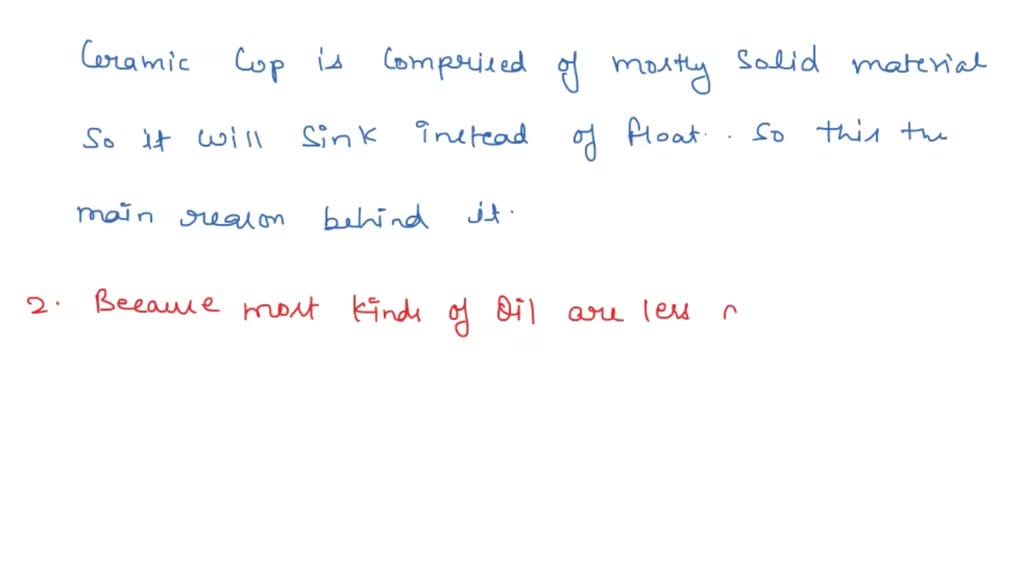 Ceramic Cup is comprised of mostly solid material
So it will sink instead of float. So this the
main reason behind it.
2. Because most kinds of Oil are less